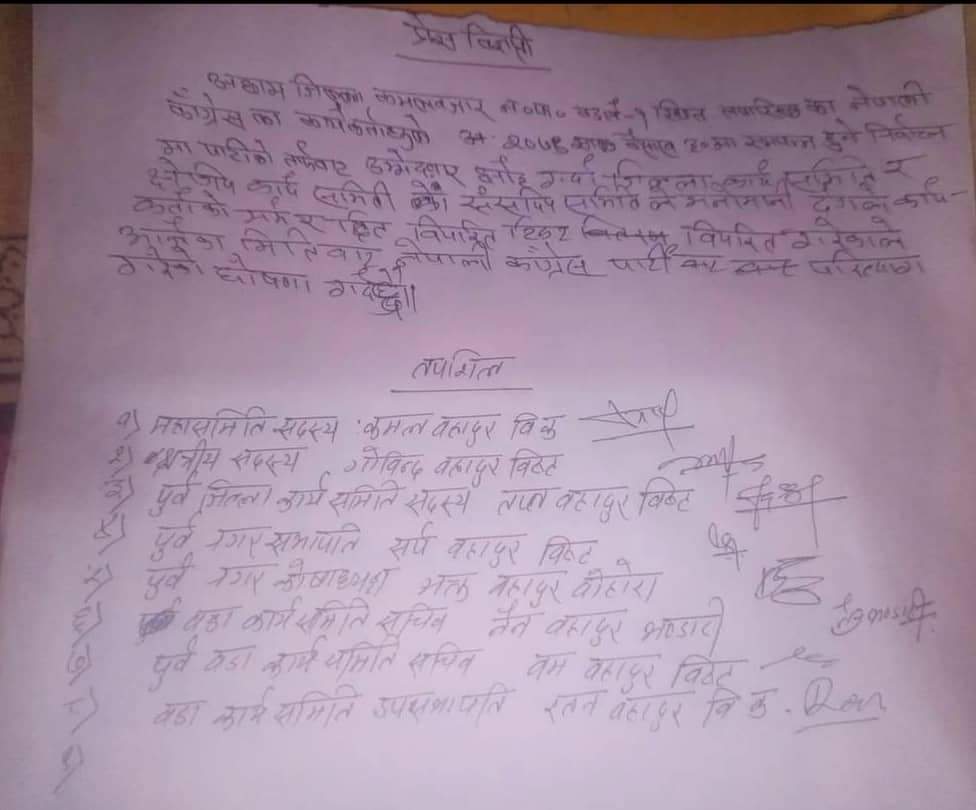 प्रेस विज्ञप्ती
अछाम जिल्लाका कमलबजार न०पा० वडा नं-१ स्थित का नेपाली
काँग्रेस का कार्यकर्ताहरुले २०७९ साल बैसाख ३० मा सम्पन्न हुने निर्वाचन
मा पार्टीको तर्फबाट उम्मेदवार छनौट गर्दा जिल्ला कार्य समिति र
क्षेत्रिय कार्य समिती संसदिय समिति ले मनोमानी ढंगले कार्य-
कर्ताको मर्म र विपरित टिकट वितरण विपरित गरेकाले
आजैका मिति बाट नेपाली काँग्रेस पार्टी परित्याग
गरेको घोषणा गर्दछौं।।
तपशिल
१) महासमिति सदस्य : कमल बहादुर वि क
२) क्षेत्रीय सदस्य गोविन्द बहादुर विष्ट
३) पुर्व जिल्ला कार्य समिति सदस्य बहादुर विष्ट
४) पुर्व नगर सभापति सर्प बहादुर विष्ट
५) पुर्व नगर कोषाध्यक्ष भक्त बहादुर बोहोरा
६) वडा कार्य समिति सचिव नैन बहादुर भण्डारी
७) पुर्व वडा कार्य समिति सचिव बम बहादुर विष्ट
८) वडा कार्य समिति उपसभापति रतन बहादुर वि क.
९)